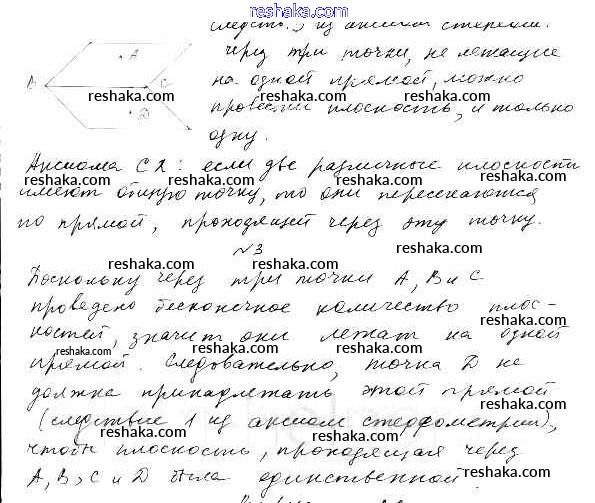 reshaka.com
следств. 3 из аксиом стереом.
A
через три точки, не лежащие
B C
на одной прямой, можно
reshaka.com reshaka.com
провести плоскость, и только
D
одну.
reshaka.com reshaka.com
Аксиома С2: если две различные плоскости
reshaka.com reshaka.com
имеют общую точку, то они пересекаются
по прямой, проходящей через эту точку.
reshaka.com reshaka.com
№3
reshaka.com
Поскольку через три точки A, B и C
reshaka.com reshaka.com
проведено бесконечное количество плос-
костей, значит они лежат на одной
reshaka.com reshaka.com
прямой. Следовательно, точка D не
reshaka.com
должна принадлежать этой прямой
reshaka.com reshaka.com
(следствие 1 из аксиом стереометрии),
чтобы плоскость, проходящая через
reshaka.com reshaka.com
A, B, C и D была единственной.